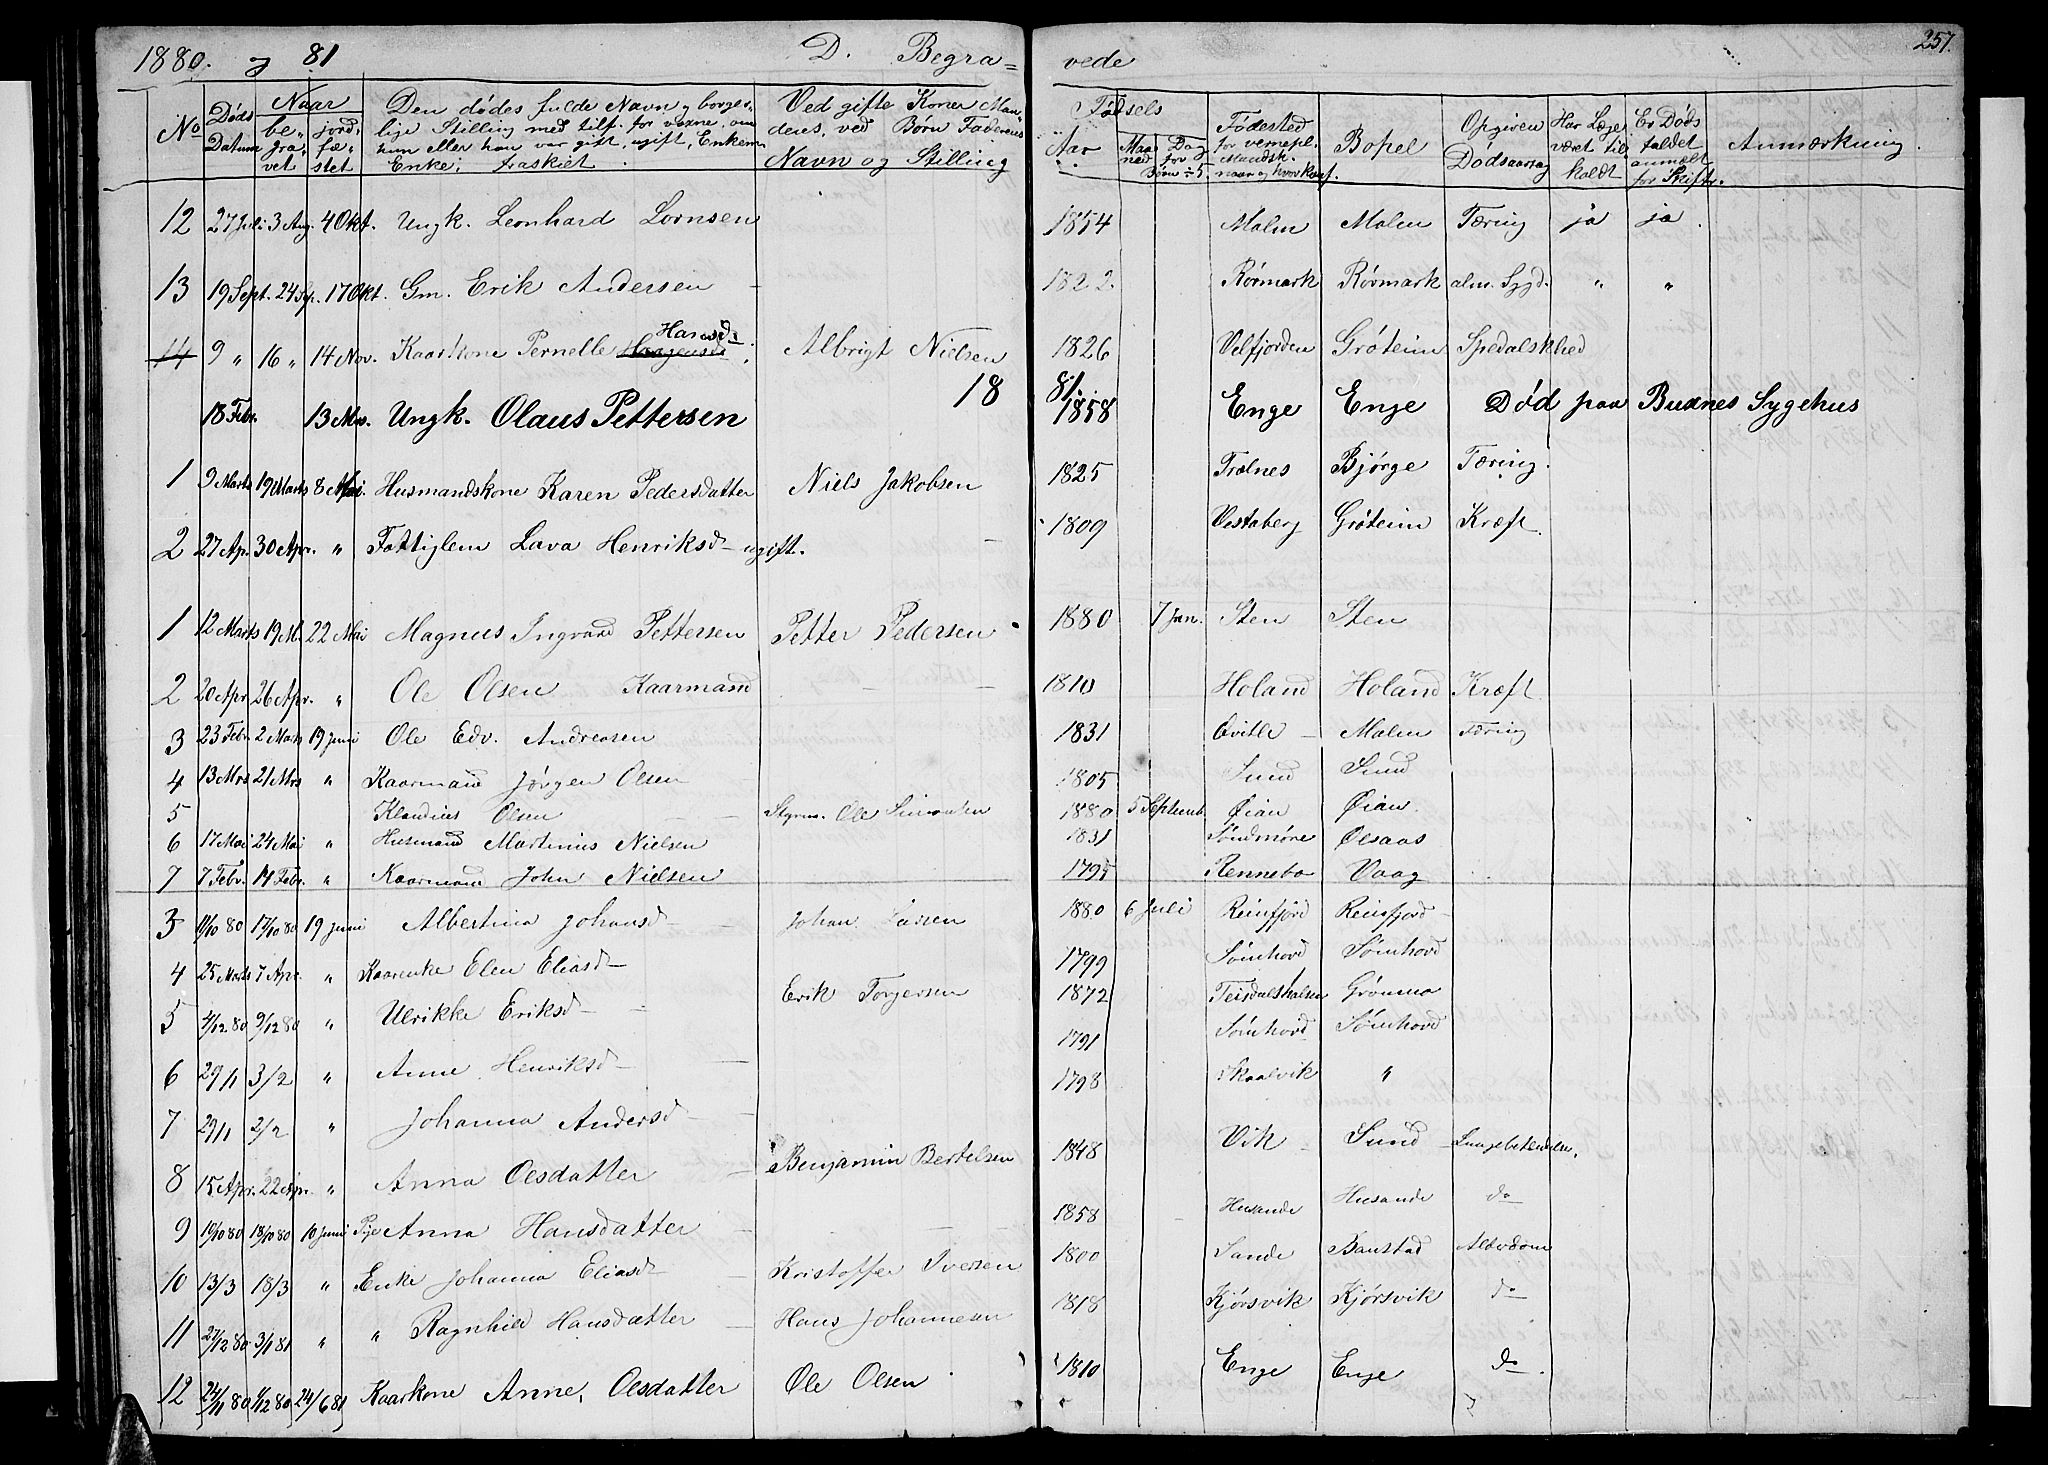 1880. og 81 D. Begra= vede 257.
No Døds Datum Naar be- gra- vet jord- fæ- stet Den dødes fulde Navn og borger- lige Stilling med tilf. for voxne, om han eller hun var gift, ugift, Enkem. Enke, fraskilt Ved gifte Koner Man- dens, ved Børn Faderens Navn og Stilling Fødsels Aar Maa- ned Dag for Børn ÷ 5. Fødested for vernepl. Mandsk. naar og hvor konf. Bopel Opgiven Dødsaarsag Har Læge været til- kaldt Er Døds faldet anmeldt for Skiftr. Anmærkning.
12 27 Juli 3 Aug. 4 Okt. Ungk. Leonhard Lornsen 1854 Malm Malm Tæring ja ja
13 19 Sept. 24 Sp. 17 Okt. Gm. Erik Andersen - 1822. Rørmark Rørmark alm. Sygd. " "
14 9 " 16 " 14 Nov. Kaarkone Pernelle Hansd: Albrigt Nielsen 1826 Velfjorden Grøteim Spedalskhed
18 81.
18 Febr. 13 Mrs. Ungk. Olaus Pettersen 1858 Enge Enge Død paa Buxnes Sygehus
1 9 Marts 19 Marts 8 Mai Husmandskone Karen Pedersdatter Niels Jakobsen 1825 Trælnes Bjørge Tæring.
2 27 Ap. 30 Apr. " Fattiglem Lava Henriksd - ugift. - 1809 Vestaberg Grøteim Kræft
1 12 Marts 19 M. 22 Mai Magnus Ingvard Pettersen Petter Pedersen 1880 7 Jan. Sten Sten
2 20 Apr. 26 Apr. " Ole Olsen Kaarmand - - 1810 Holand Holand Kræft
3 23 Febr. 2 Marts 19 Juni Ole Edv. Andreasen 1831 Qvitle - Malm Tæring
4 13 Mrs 21 Mrs " Kaarmand Jørgen Olsen 1805 Sund Sund
5 Klaudius Olsen Styrm. Ole Simonsen 1880 5 Septemb. Øian Øian
6 17 Mai 24 Mai " Husmand Martinus Nielsen 1831 Søndmøre Ølsaas
7 7 Febr. 14 Febr. " Kaarmand John Nielsen 1795 Rennebo Vaag
3 11/10 80 17/10 80 19 Juni Albertina Johansd - Johan Larsen 1880 6 Juli Reinfjord Reinsfjord
4 25 Marts 7 Apr. " Kaarenke Elen Eliasd - 1799 Sømhovd Sømhovd
5 4/12 80 9/12 80 " Ulrikke Eriksd - - Erik Torgersen 1872 Teisdalshalsen Grønmo
6 29/1 3/2 " Anne Henriksd - 1791 Sømhovd Sømhovd
7 29/1 2/2 " Johanna Andersd - 1798 Skaalvik "
8 15 Apr. 22 Apr. " Anna Olesdatter - Benjamin Bertelsen 1848 Vik Sund Lungebetændelse.
9 10/10 80 18/10 80 10 Juni Pige Anna Hansdatter - - 1858 Husande Husande do
10 13/3 18/3 " Enke Johanna Eliasd - Kristoffer Iversen 1800 Sande Baustad Alderdom
11 27/12 80 3/1 81 " " Ragnhild Hansdatter - Hans Johannesen 1818 Kjørsvik Kjørsvik do
12 24/11 80 1/12 80 24/6 81 Kaarkone Anne, Olesdatter Ole Olsen 1810 Enge Enge do